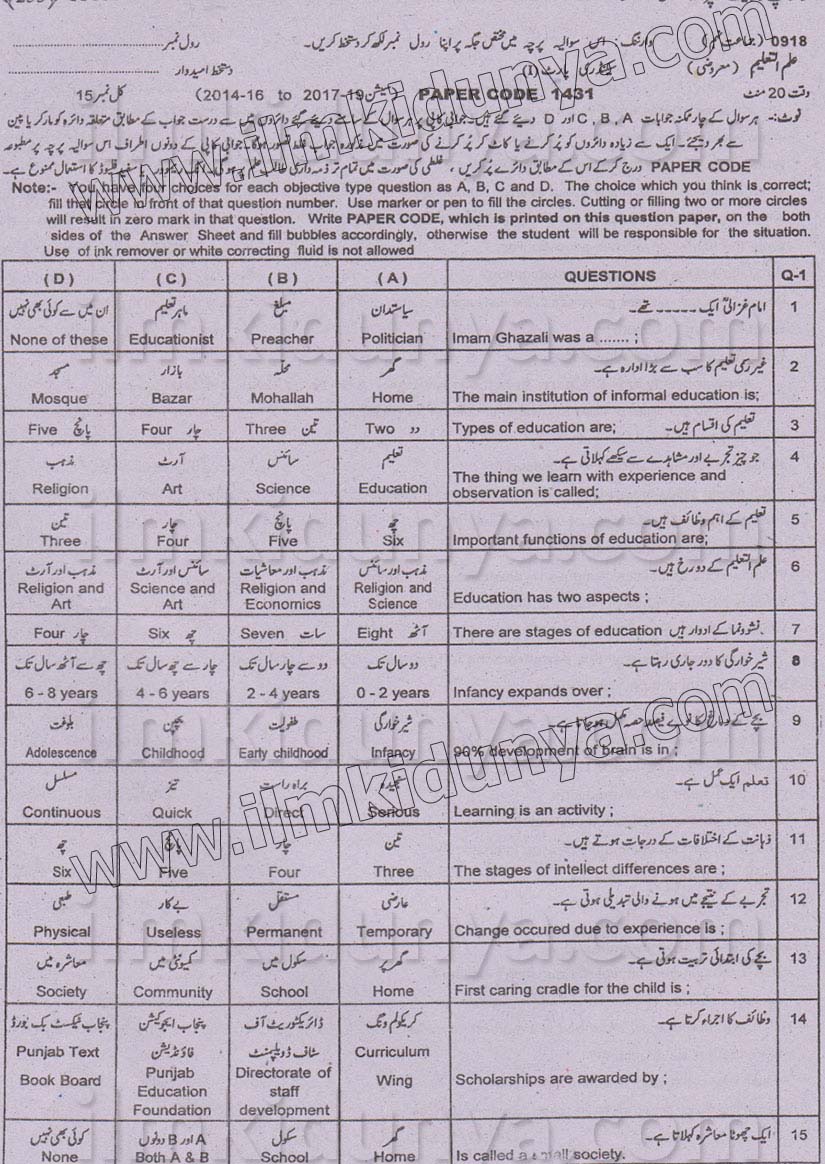 رول نمبر
0918 - (جماعت نہم) وارننگ :۔ اس سوالیہ پرچہ میں مختص جگہ پر اپنا رول نمبر لکھ کر دستخط کریں۔ رول نمبر
علم التعلیم (معروضی) دستخط امیدوار
وقت 20 منٹ PAPER CODE 1431 (سیشن 2014-16 to 2017-19) کل نمبر 15
نوٹ:۔ ہر سوال کے چار ممکنہ جوابات A ، B ، C اور D دیئے گئے ہیں۔ جوابی کاپی پر ہر سوال کے سامنے دیئے گئے دائروں میں سے درست جواب کے مطابق متعلقہ دائرہ کو مارکر یا پین
سے بھر دیجئے۔ ایک سے زیادہ دائروں کو پُر کرنے یا کاٹ کر پُر کرنے کی صورت میں مذکورہ جواب غلط تصور ہوگا۔ جوابی کاپی کے دونوں اطراف اس سوالیہ پرچہ پر مطبوعہ
PAPER CODE درج کر کے اس کے مطابق دائرے پُر کریں ، غلطی کی صورت میں تمام تر ذمہ داری طالب علم پر ہوگی۔ فلیوڈ کا استعمال ممنوع ہے۔
Note:- You have four choices for each objective type question as A, B, C and D. The choice which you think is correct;
fill that circle in front of that question number. Use marker or pen to fill the circles. Cutting or filling two or more circles
will result in zero mark in that question. Write PAPER CODE, which is printed on this question paper, on the both
sides of the Answer Sheet and fill bubbles accordingly, otherwise the student will be responsible for the situation.
Use of ink remover or white correcting fluid is not allowed
(D) (C) (B) (A) QUESTIONS Q-1
ان میں سے کوئی بھی نہیں ماہر تعلیم مبلغ سیاستدان امام غزالیؒ ایک ۔۔۔۔۔ تھے۔ 1
None of these Educationist Preacher Politician Imam Ghazali was a ....... ;
مسجد بازار محلہ گھر غیر رسمی تعلیم کا سب سے بڑا ادارہ ہے۔ 2
Mosque Bazar Mohallah Home The main institution of informal education is;
Five پانچ Four چار Three تین Two دو Types of education are; تعلیم کی اقسام ہیں۔ 3
مذہب آرٹ سائنس تعلیم جو چیز تجربے اور مشاہدے سے سیکھے کہلاتی ہے۔ 4
Religion Art Science Education The thing we learn with experience and
observation is called;
تین چار پانچ چھ تعلیم کے اہم وظائف ہیں۔ 5
Three Four Five Six Important functions of education are;
مذہب اور آرٹ سائنس اور آرٹ مذہب اور معاشیات مذہب اور سائنس علم التعلیم کے دو رخ ہیں۔ 6
Religion and Art Science and Art Religion and Economics Religion and Science Education has two aspects ;
Four چار Six چھ Seven سات Eight آٹھ There are stages of education نشوونما کے ادوار ہیں۔ 7
چھ سے آٹھ سال تک چار سے چھ سال تک دو سے چار سال تک دو سال تک شیر خوارگی کا دور جاری رہتا ہے۔ 8
6 - 8 years 4 - 6 years 2 - 4 years 0 - 2 years Infancy expands over ;
بلوغت بچپن طفولیت شیر خوارگی بچے کے دماغ کا نوے فیصد حصہ مکمل ہو جاتا ہے۔ 9
Adolescence Childhood Early childhood Infancy 90% development of brain is in ;
مسلسل تیز براہ راست سنجیدہ تعلم ایک عمل ہے۔ 10
Continuous Quick Direct Serious Learning is an activity ;
چھ پانچ چار تین ذہانت کے اختلافات کے درجات ہوتے ہیں۔ 11
Six Five Four Three The stages of intellect differences are ;
طبعی بے کار مستقل عارضی تجربے کے نتیجے میں ہونے والی تبدیلی ہوتی ہے۔ 12
Physical Useless Permanent Temporary Change occured due to experience is ;
معاشرہ میں کمیونٹی میں سکول میں گھر پر بچے کی ابتدائی تربیت ہوتی ہے۔ 13
Society Community School Home First caring cradle for the child is ;
پنجاب ٹیکسٹ بک بورڈ پنجاب ایجوکیشن فاؤنڈیشن ڈائریکٹوریٹ آف سٹاف ڈویلپمنٹ کریکولم ونگ وظائف کا اجراء کرتا ہے۔ 14
Punjab Text Book Board Punjab Education Foundation Directorate of staff development Curriculum Wing Scholarships are awarded by ;
کوئی بھی نہیں A اور B دونوں سکول گھر ایک چھوٹا معاشرہ کہلاتا ہے۔ 15
None Both A & B School Home Is called a small society.
www.ilmkidunya.com
www.ilmkidunya.com
ilmkidunya.com
ilmkidunya.com
ilmkidunya.com
ilmkidunya.com
ilmkidunya.com